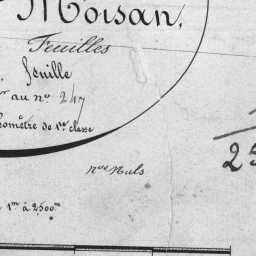 Moisan,
Feuilles
feuille
au no. 247
omètre de 1re classe
25
nos nuls
1m à 2500m